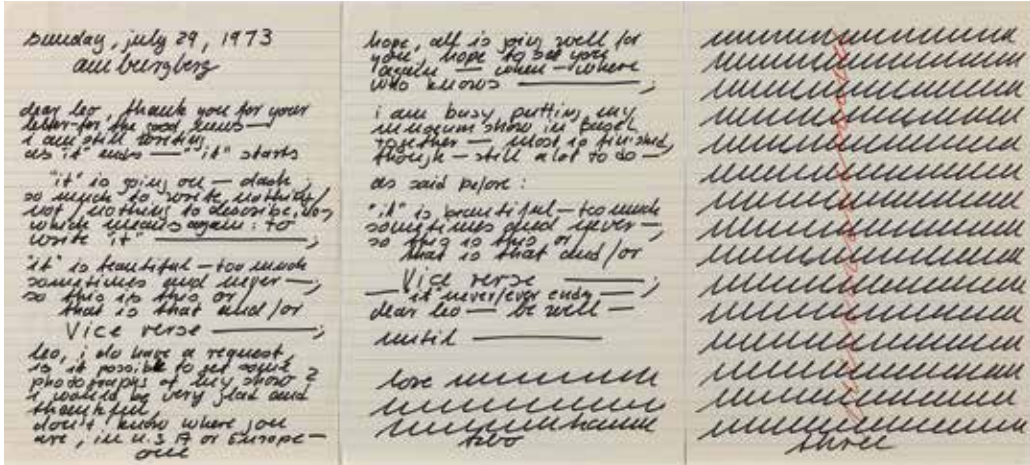 sunday, july 29, 1973
am burgberg
dear leo, thank you for your
letter-for the good news—
i am still writing
as "it" ends — "it" starts
"it" is going on — dash ;
so much to write, nothing/
not / nothing to describe,
which means again: to
write "it" ———;
"it" is beautiful — too much
sometimes and never —;
so this is this, or
that is that and/or
Vice verse ———;
leo, i do have a request,
is it possible to get some
photographs of my show ?
i would be very glad and
thankful,
don't know where you
are, in U.S A or Europe—
one
hope, all is going well for
you, hope to see you
again — when — where
who knows ———;
i am busy putting my
museum show in basel
together — most is finished,
though — still a lot to do —
as said before :
"it" is beautiful — too much
sometimes and never —;
so this is this, or
that is that and/or
Vice verse ———;
— "it" never/ever ends —
dear leo — be well —
until ———
love
two
three